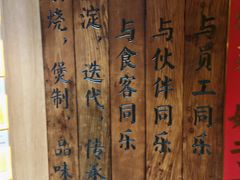 与员工同乐
与伙伴同乐
与食客同乐
淀，迭代，传承
烧，煲制，品味